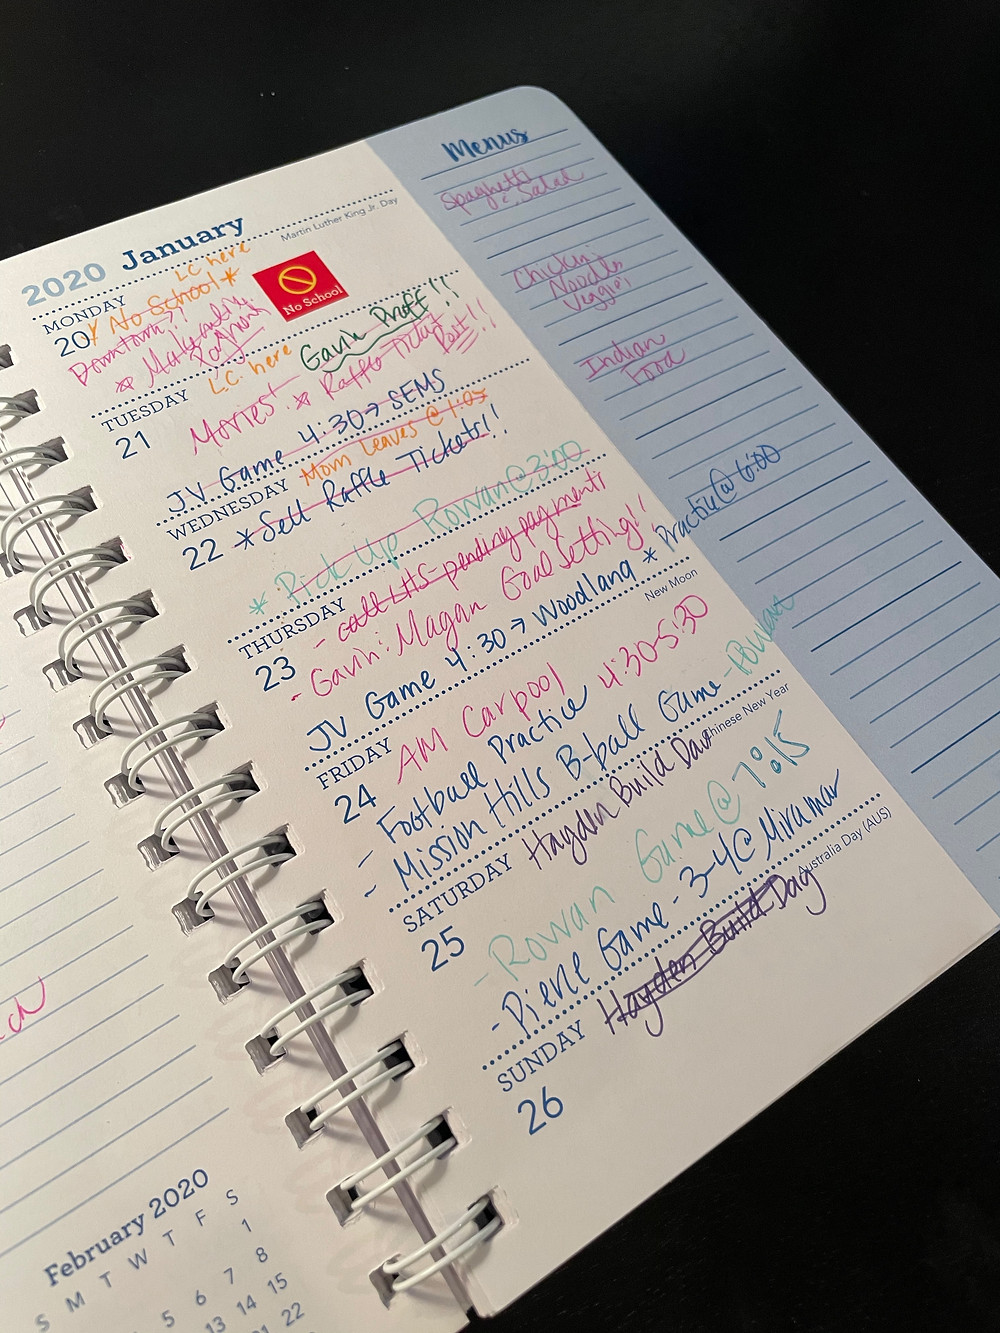 Menus
Spaghetti
& Salad
Chicken
Noodles
Veggies
Indian
Food
2020 January
Martin Luther King Jr. Day
MONDAY
LC here
20 * No School *
No School
Downtown
* Make
TUESDAY
L.C. here
Gavin Proff!!
21
Movies! * Raffle Ticket
Post!!
JV Game 4:30 → SEMS
WEDNESDAY
Mom leaves @ 1:05
22
* Sell Raffle Tickets!!
* Pick Up Rowan @ 3:00
THURSDAY
- call LHS pending payments
23
- Gavin: Magan Goal Setting!!
JV Game 4:30 → Woodland * Practice @ 6:00
New Moon
FRIDAY
AM Carpool
24
- Football Practice 4:30-5:30
- Mission Hills B-ball Game - Poway
Chinese New Year
SATURDAY
Hayden Build Day
25
- Rowan Game @ 7:15
- Pierce Game - 3-4 @ Miramar
Australia Day (AUS)
SUNDAY
Hayden Build Day
26
February 2020
S M T W T F S
1
5 6 7 8
13 14 15
21 22